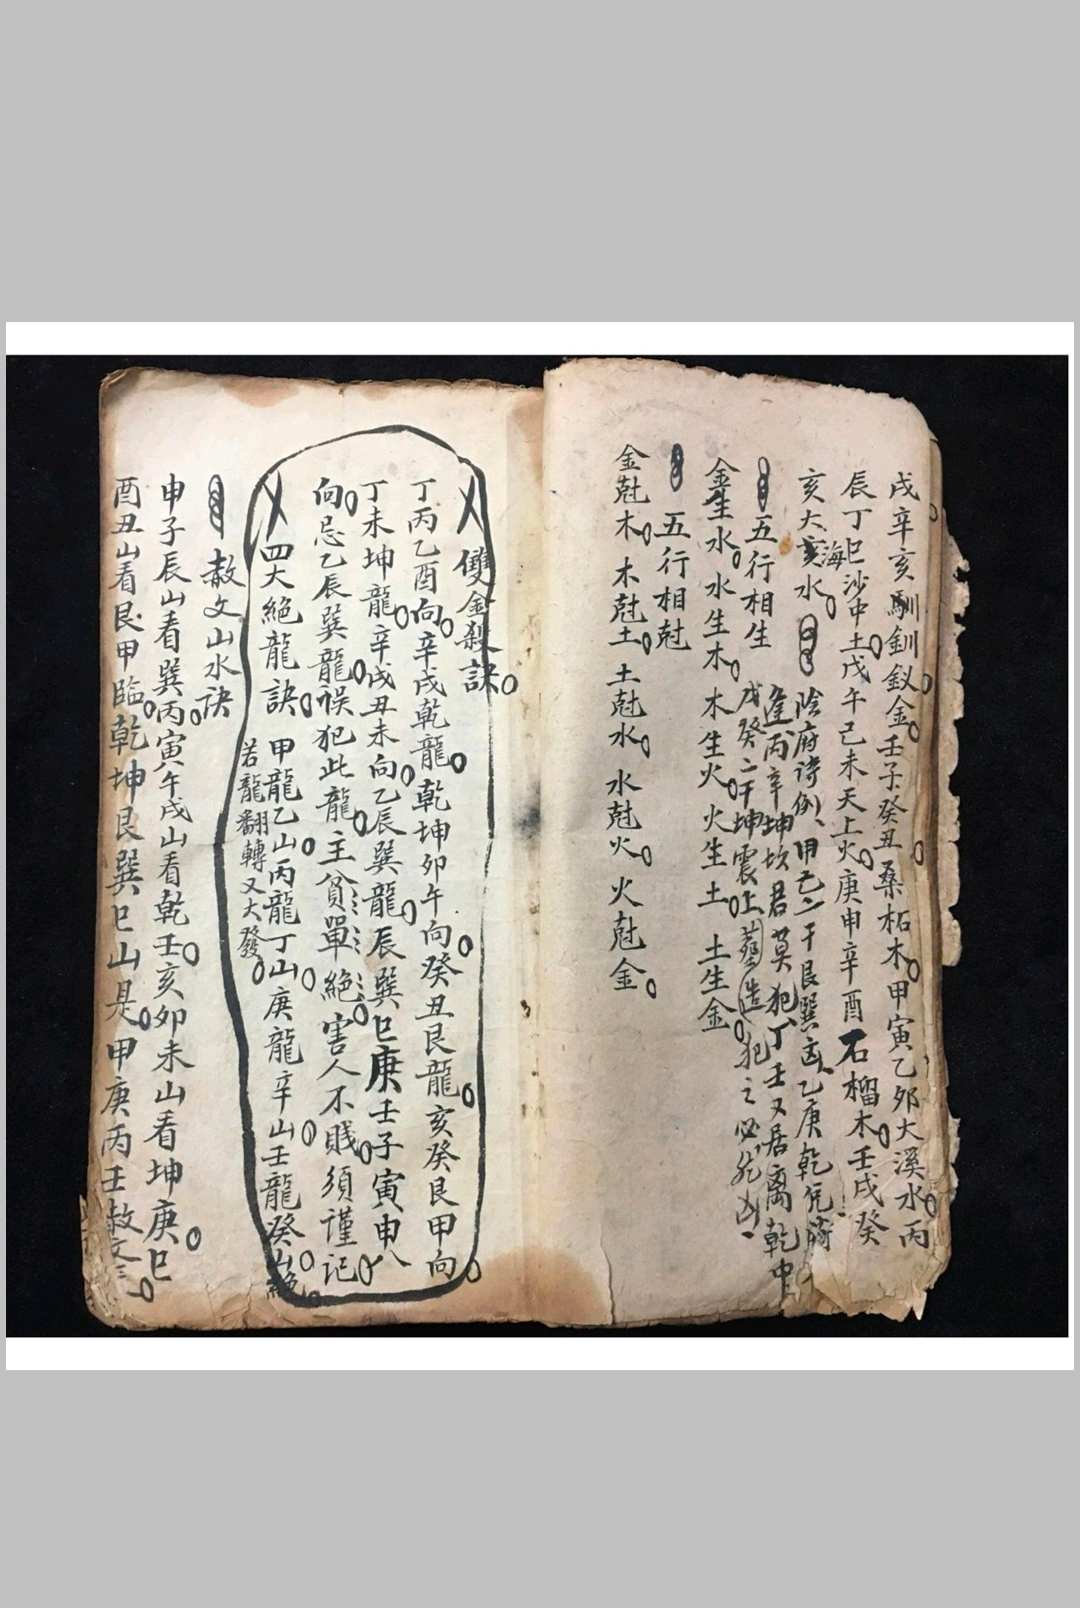 戌辛亥馴釧釵金壬子癸丑桑柘木甲寅乙夘大溪水丙
辰丁巳沙中土戊午己未天上火庚申辛酉石榴木壬戌癸
亥大海水
陰府詩例甲己二干艮巽凶乙庚乾兑
逢丙辛坤坎君莫犯丁壬又居离乾中
戊癸二干坤震上塟造犯之必然凶
五行相生
金生水水生木木生火火生土土生金
五行相尅
金尅木木尅土土尅水水尅火火尅金
雙金殺訣
丁丙乙酉向辛戌乾龍乾坤夘午向癸丑艮龍亥癸艮甲向
丁未坤龍辛戌丑未向乙辰巽龍辰巽巳庚壬子寅申八
向忌乙辰巽龍悮犯此龍主貧單絶害人不賤須謹记
四大絕龍訣甲龍乙山丙龍丁山庚龍辛山壬龍癸山絶
若龍翻轉又大發
赦文山水诀
申子辰山看巽丙寅午戌山看乾壬亥夘未山看坤庚巳
酉丑山看艮甲臨乾坤艮巽巳山是甲庚丙壬赦文